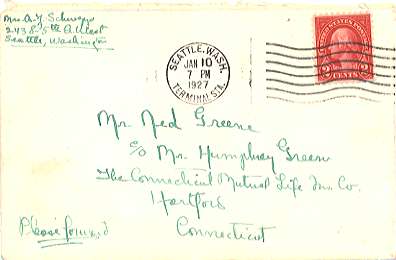 Mrs. A. J. Schwegler
2438-5th Ave West
Seattle, Washington
SEATTLE, WASH.
JAN 10
7 PM
1927
TERMINAL STA.
UNITED STATES POSTAGE
2 CENTS 2
Mr Ned Greene
c/o Mr. Humphrey Green
The Connecticut Mutual Life Ins. Co.
Hartford
Connecticut
Please forward